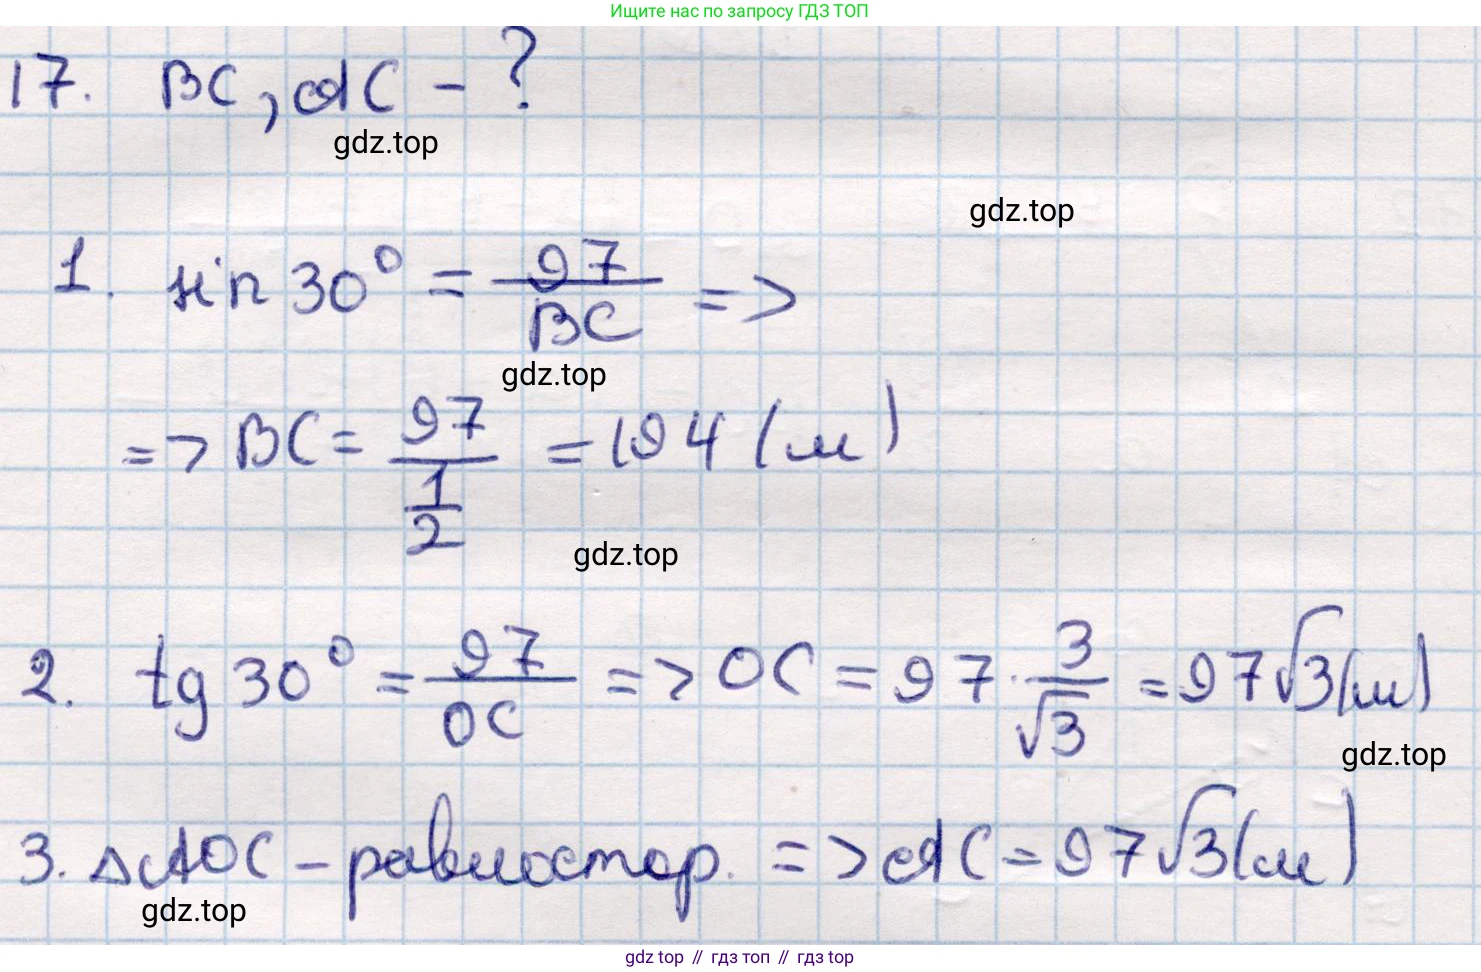 Ищите нас по запросу ГДЗ ТОП
17. BC, AC - ?
gdz.top
gdz.top
1. sin 30° = 97/BC =>
gdz.top
=> BC = 97/(1/2) = 194 (м)
gdz.top
2. tg 30° = 97/OC => OC = 97 · 3/√3 = 97√3 (м)
gdz.top
3. △AOC - равностор. => AC = 97√3 (м)
gdz.top
gdz top // гдз топ // гдз top